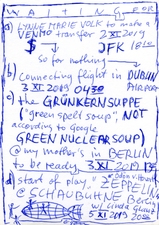 WAITING FOR
a) LYNNE MARIE VOLK to make a
VENMO transfer 2 XI 2019
$ → JFK 18
so for nothing
b) connecting flight in DUBLIN
3 XI 2019 04:30 AIRPORT
c) the GRÜNKERNSUPPE
("green spelt soup", NOT
according to Google
GREEN NUCLEAR SOUP)
@ my mother's in BERLIN
to be ready, 3 XI 2019
d) start of play "ZEPPELIN"
@ SCHAUBÜHNE Berlin
w/ Linda
5 XI 2019